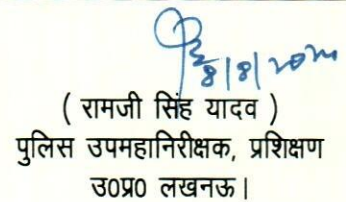 8/8/2024
( रामजी सिंह यादव )
पुलिस उपमहानिरीक्षक, प्रशिक्षण
उ0प्र0 लखनऊ।